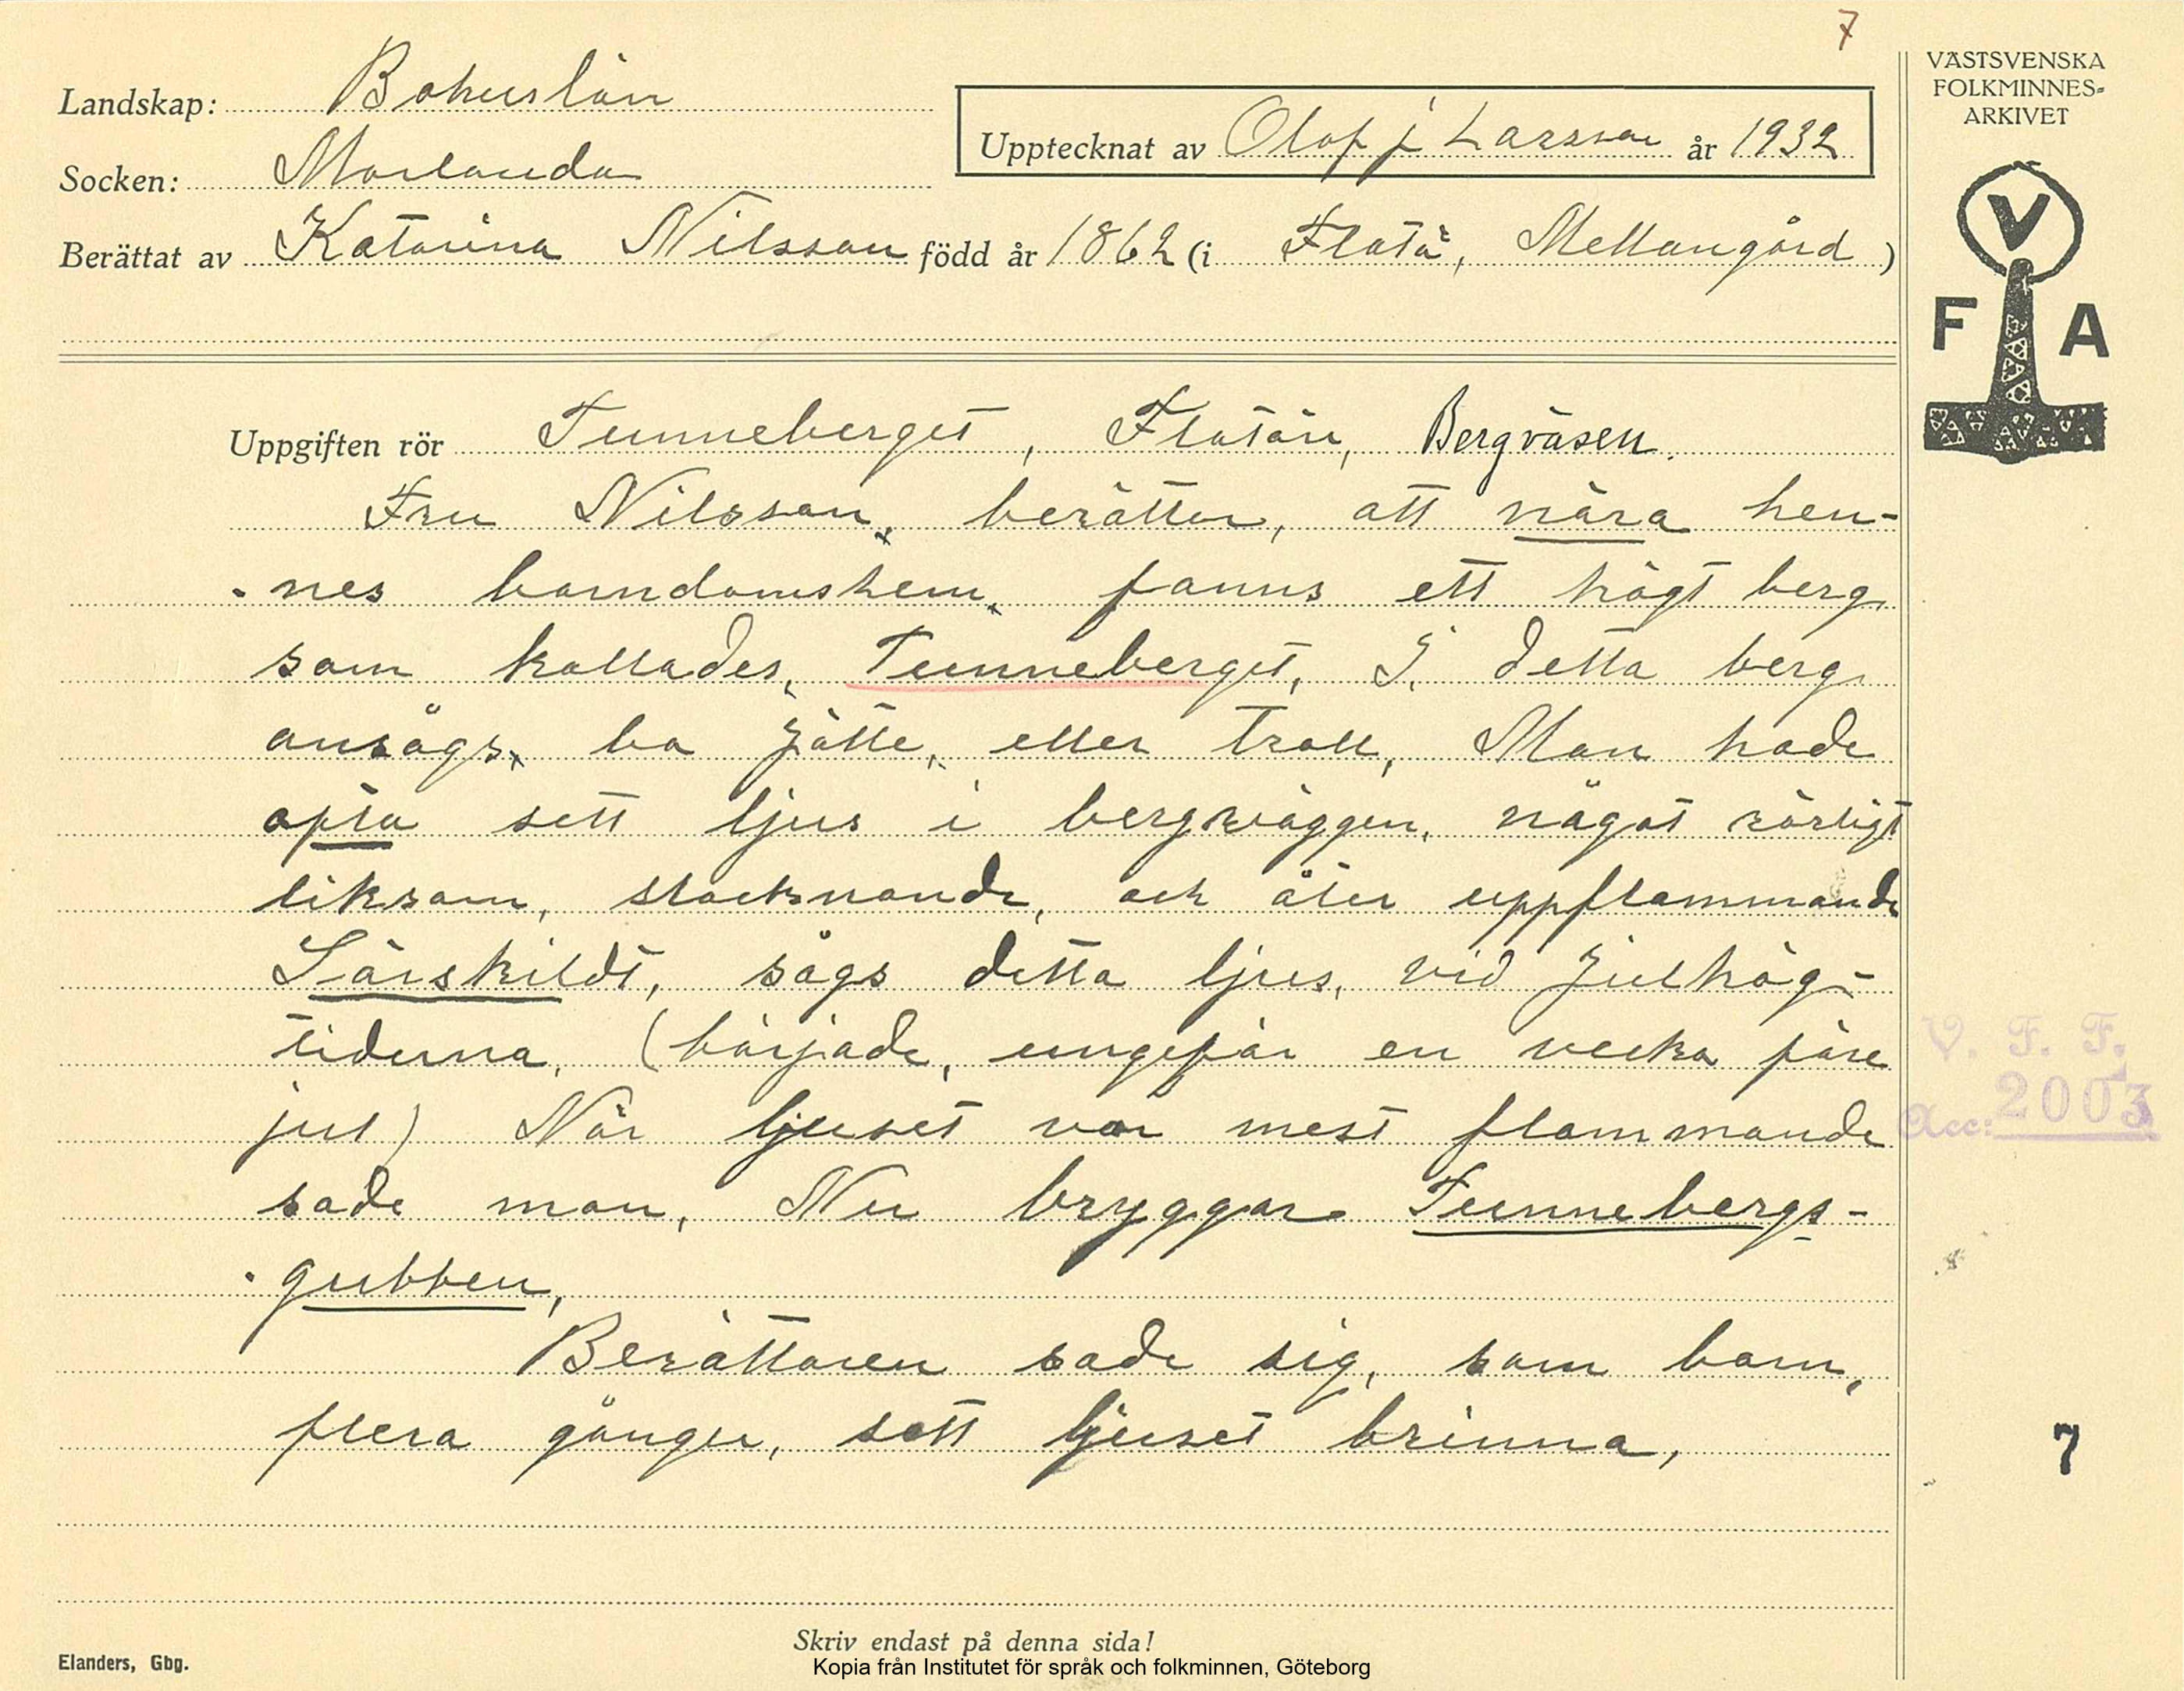 7
Landskap: Bohuslän
Socken: Morlanda
Berättat av Katarina Nilsson född år 1862 (i Flatö, Mellangård)
Upptecknat av Olof J Larsson år 1932
VÄSTSVENSKA
FOLKMINNES-
ARKIVET
V
F A
Uppgiften rör Tunneberget, Flatön, Bergväsen.
Fru Nilsson, berätter, att nära hen-
nes barndomshem, fanns ett högt berg
som kallades, Tunneberget, I detta berg
ansågs, bo Jätte, eller Troll, Man hade
ofta sett ljus i bergväggen, något rörligt
liksom, slocknande, och åter uppflammande
Särskildt, sågs detta ljus, vid Julhög-
tiderna, (började, ungefär en vecka före
jul) När ljuset var mest flammande
sade man, Nu bryggar Tunnebergs-
gubben,
Berättaren sade sig, som barn,
flera gånger, sett ljuset brinna,
V. F. F.
Acc: 2003
7
Skriv endast på denna sida!
Elanders, Gbg.
Kopia från Institutet för språk och folkminnen, Göteborg